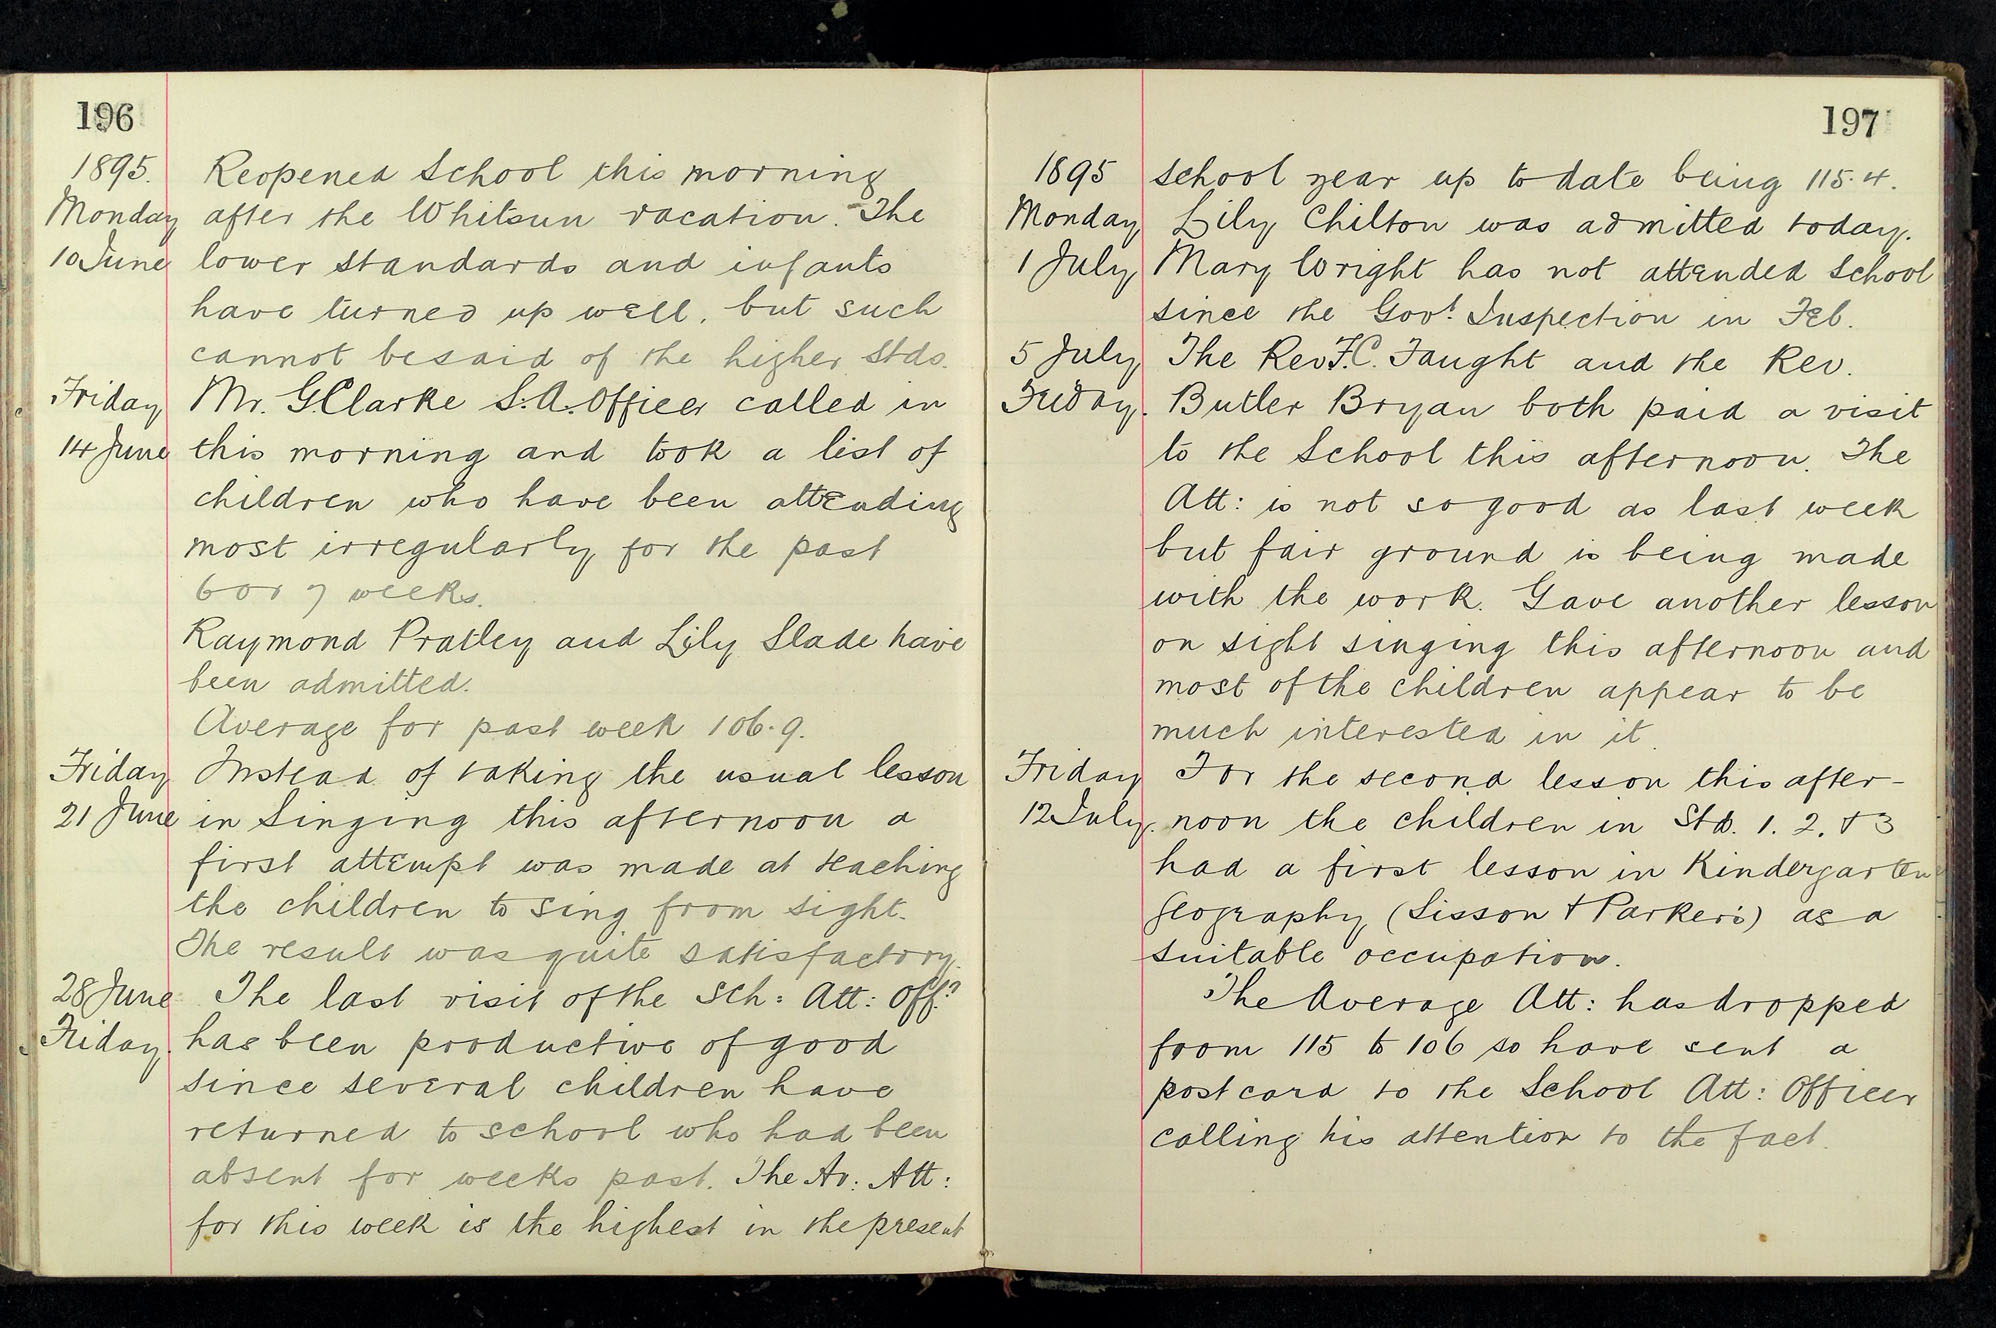 196
1895. Reopened School this morning
Monday after the Whitsun vacation. The
10 June lower standards and infants
have turned up well, but such
cannot be said of the higher Stds.
Friday Mr. G. Clarke S.A. Officer called in
14 June this morning and took a list of
children who have been attending
most irregularly for the past
6 or 7 weeks.
Raymond Pratley and Lily Slade have
been admitted.
Average for past week 106.9.
Friday Instead of taking the usual lesson
21 June in Singing this afternoon a
first attempt was made at teaching
the children to sing from sight.
The result was quite satisfactory.
28 June The last visit of the Sch: Att: Offr
Friday. has been productive of good
since several children have
returned to school who had been
absent for weeks past. The Av: Att:
for this week is the highest in the present
197
1895 school year up to date being 115.4.
Monday Lily Chilton was admitted today.
1 July Mary Wright has not attended School
since the Govt. Inspection in Feb.
5 July The Rev F.C. Faught and the Rev.
Friday. Butler Bryan both paid a visit
to the School this afternoon. The
Att: is not so good as last week
but fair ground is being made
with the work. Gave another lesson
on sight singing this afternoon and
most of the children appear to be
much interested in it.
Friday For the second lesson this after-
12 July. noon the children in Std. 1. 2. & 3
had a first lesson in Kindergarten
Geography (Sisson & Parker's) as a
suitable occupation.
The Average Att: has dropped
from 115 to 106 so have sent a
post card to the School Att: Officer
calling his attention to the fact.